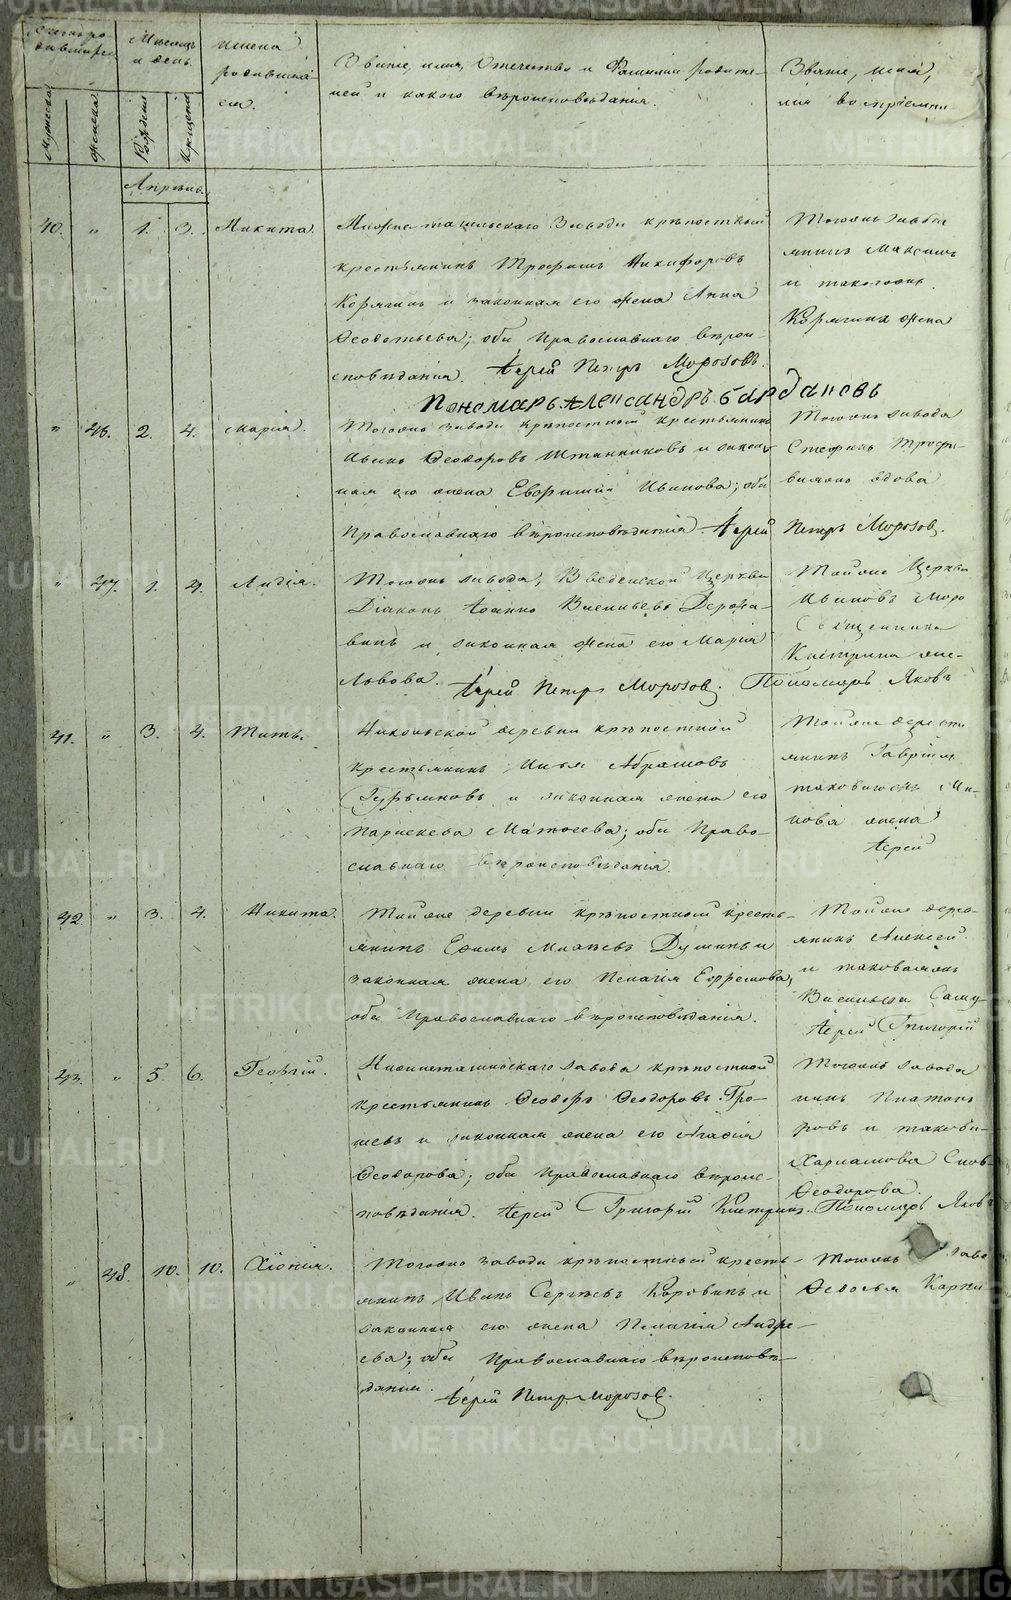 Мѣсяцъ и день.
Имена родившихся.
Званіе, имя, Отечество и Фамилія родите-
лей и какого вѣроисповѣданія.
Званіе, имя,
лія воспріемни
Мужеска
Женска
Рожденія
Крещенія
Апрѣль.
40. " 1. 3. Никита.
Нижнетагильскаго Завода крѣпостный
крестьянинъ Трофимъ Никифоровъ
Корягинъ и законная его жена Анна
Ѳеодотьева; оба Православнаго вѣрои-
сповѣданія. Іерей Петръ Морозовъ.
Пономарь Александръ Бардановъ
Тогожъ завода
янинъ Максимъ
и тогожъ
Корягина жена
" 46. 2. 4. Марія.
Тогоже завода крѣпостный крестьянинъ
Иванъ Ѳеодоровъ Штанниковъ и закон-
ная его жена Евфимія Иванова; оба
Православнаго вѣроисповѣданія. Іерей Петръ Морозов.
Тогожъ завода
Стефанъ Трофи-
вдова
" 47. 1. 4. Лидія.
Тогожъ завода, Введенской Церкви
Діаконъ Іоаннъ Васильевъ Держа-
винъ и законная жена его Марія
Львова. Іерей Петръ Морозов. Пономарь Яковъ
Тойже Церкви
Ивановъ Моро
Священника
Кастрина же-
41. " 3. 4. Титъ.
Никольской деревни крѣпостной
крестьянинъ Илья Абрамовъ
Гурьяновъ и законная жена его
Параскева Матѳеева; оба Право-
славнаго вѣроисповѣданія.
Тойже деревни
янинъ Гавріилъ
нова жена
Іерей
42. " 3. 4. Никита.
Тойже деревни крѣпостный кресть-
янинъ Ефимъ Михѣевъ Душинъ и
законная жена его Пелагія Ефремова,
оба Православнаго вѣроисповѣданія.
Тойже дере-
янинъ Алексей
и таковаяжъ
Васильева Саму
Іерей Григорій
43. " 5 6. Георгій.
Нижнетагильскаго завода крѣпостной
крестьянинъ Ѳеодоръ Ѳеодоровъ Гро-
шевъ и законная жена его Агафія
Ѳеодорова; оба Православнаго вѣрои-
сповѣданія. Іерей Григорій Кастринъ. Пономарь Яковъ
Тогожъ завода
нинъ Платонъ
ровъ и такова-
Харламова Снов-
Ѳеодорова.
" 48. 10. 10. Хіонія.
Тогоже завода крѣпостный кресть-
янинъ Иванъ Сергѣевъ Коровинъ и
законная его жена Пелагія Андре-
ева; оба Православнаго вѣроисповѣ-
данія. Іерей Петръ Морозов.
Тогожъ заво
Ѳедосья Карпи
METRIKI.GASO-URAL.RU